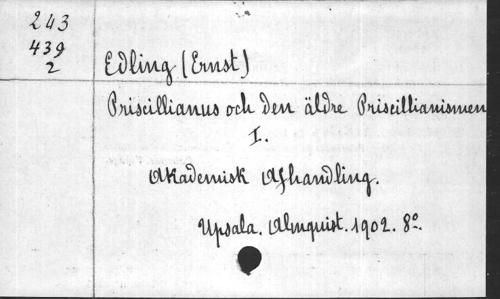 243
439
2
Edling (Ernst)
Priscillianus och den äldre Priscillianismen
I.
Akademisk Afhandling.
Upsala. Almquist. 1902. 8º.